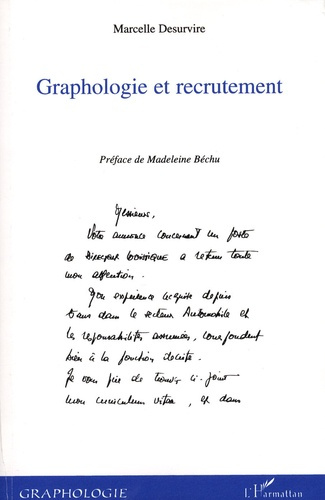 Marcelle Desurvire
Graphologie et recrutement
Préface de Madeleine Béchu
Messieurs,
Votre annonce concernant un poste
de DIRECTEUR LOGISTIQUE a retenu toute
mon attention.
Mon expérience acquise depuis
ans dans le secteur Automobile et
les responsabilités assumées, correspondent
bien à la fonction décrite.
Je vous prie de trouver ci-joint
mon curriculum vitae, et dans
GRAPHOLOGIE
L'Harmattan